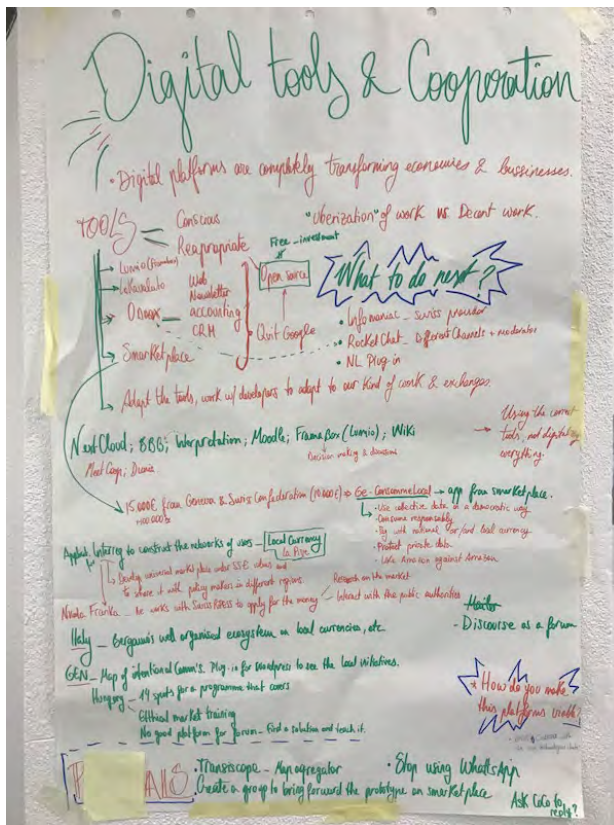 Digital tools & Cooperation
• Digital platforms are completely transforming economies & bussinesses.
TOOLS
Conscious
Reapropriate
"Uberization" of work vs Decent work.
Free - investment
Open source
What to do next?
Odoo
Web
Newsletter
accounting
CRM
Quit Google
• Infomaniac _ Swiss provider
• RocketChat _ Different Channels + moderators
• NL Plug-in
Smarketplace
Adapt the tools, work w/ developers to adapt to our kind of work & exchanges.
NextCloud; BBB; Interpretation; Moodle; FramaBox (Lumio); Wiki
Meet Coop;
Decision making &
Using the correct
tools, not digitally
everything.
15.000€ from Geneva & Swiss Confederation
Ge-ConsommeLocal → app from smarketplace.
• Use collective data in a democratic way
• Consume responsably
• Pay with national or/and local currency
• Protect private data
• Local Amazon against Amazon
to construct the networks of users
Local Currency
Develop universal market place under SSE values and
to share it with policy makers in different regions.
Research on the market
Interact with the public authorities
He works with Swiss RIPESS to apply for the money
Italy _ Bergamis well organised ecosystem on local currencies, etc
• Discourse as a forum
GEN _ Map of intentional Comm's. Plug-in for wordpress to see the local initiatives.
Hungary _ 14 spots for a programme that covers
Ethical market training
No good platform for forum _ Find a solution and teach it.
* How do you make
this platforms viable?
• Transiscope _ Map agregator
• Stop using WhattsApp
Create a group to bring forward the prototype on smarketplace
Ask CoCo to
reply?